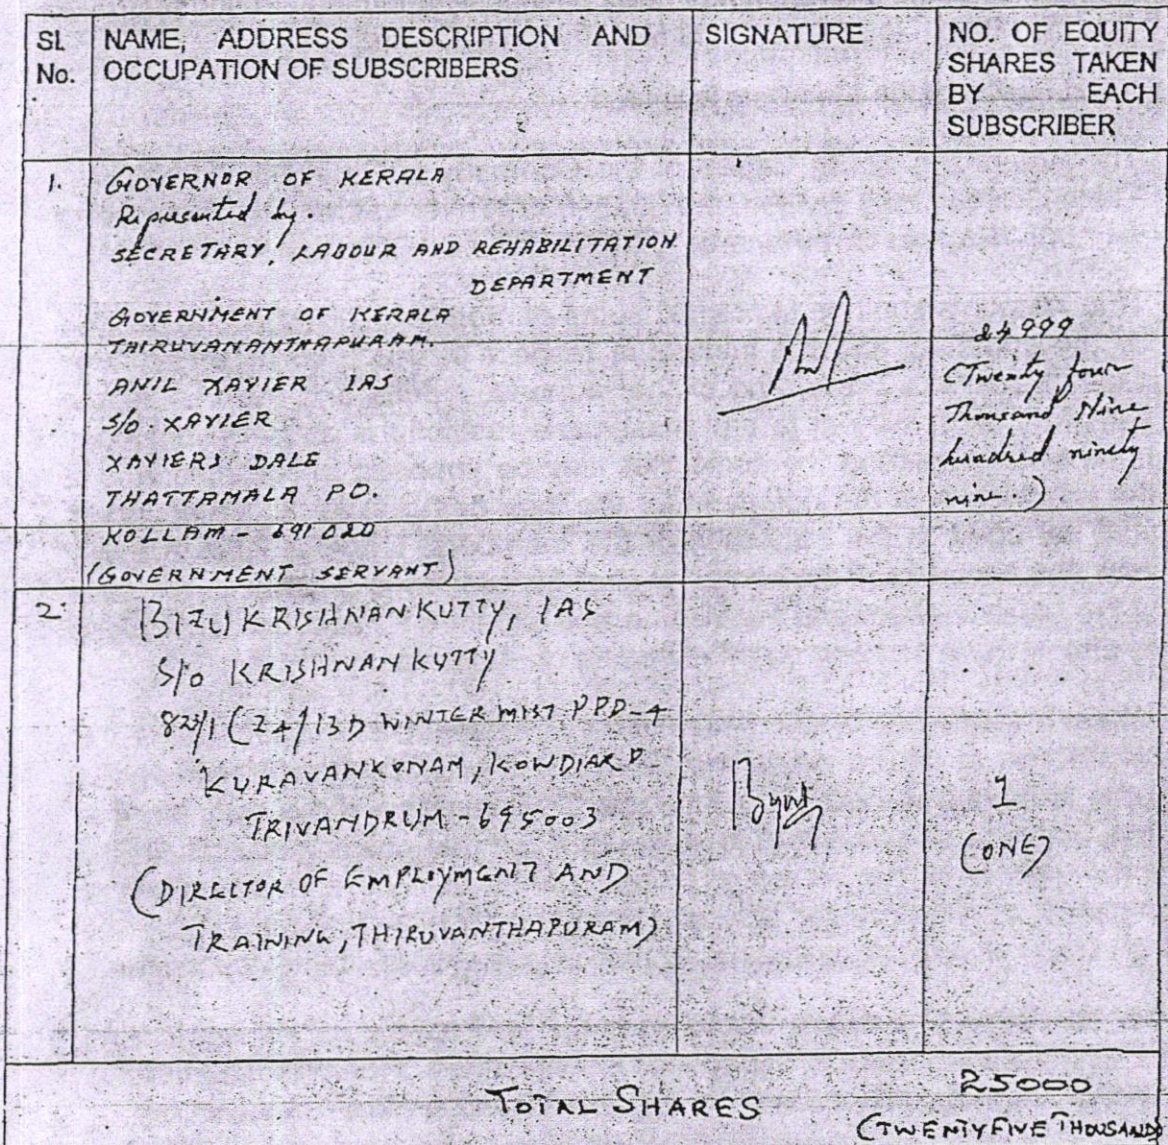 SL No.
NAME, ADDRESS DESCRIPTION AND
OCCUPATION OF SUBSCRIBERS
SIGNATURE
NO. OF EQUITY
SHARES TAKEN
BY EACH
SUBSCRIBER
1.
GOVERNOR OF KERALA
Represented by.
SECRETARY, LABOUR AND REHABILITATION
DEPARTMENT
GOVERNMENT OF KERALA
THIRUVANANTHAPURAM.
ANIL XAVIER IAS
S/o. XAVIER
XAVIERS DALE
THATTAMALA PO.
KOLLAM - 691 020
(GOVERNMENT SERVANT)
24999
(Twenty four
Thousand Nine
hundred ninety
nine.)
2.
BIJU KRISHNANKUTTY, IAS
S/o KRISHNAN KUTTY
WINTER MIST PPD-4
KURAVANKONAM, KOWDIAR
TRIVANDRUM - 695003
(DIRECTOR OF EMPLOYMENT AND
TRAINING, THIRUVANTHAPURAM)
1
(ONE)
TOTAL SHARES
25000
(TWENTY FIVE THOUSAND)